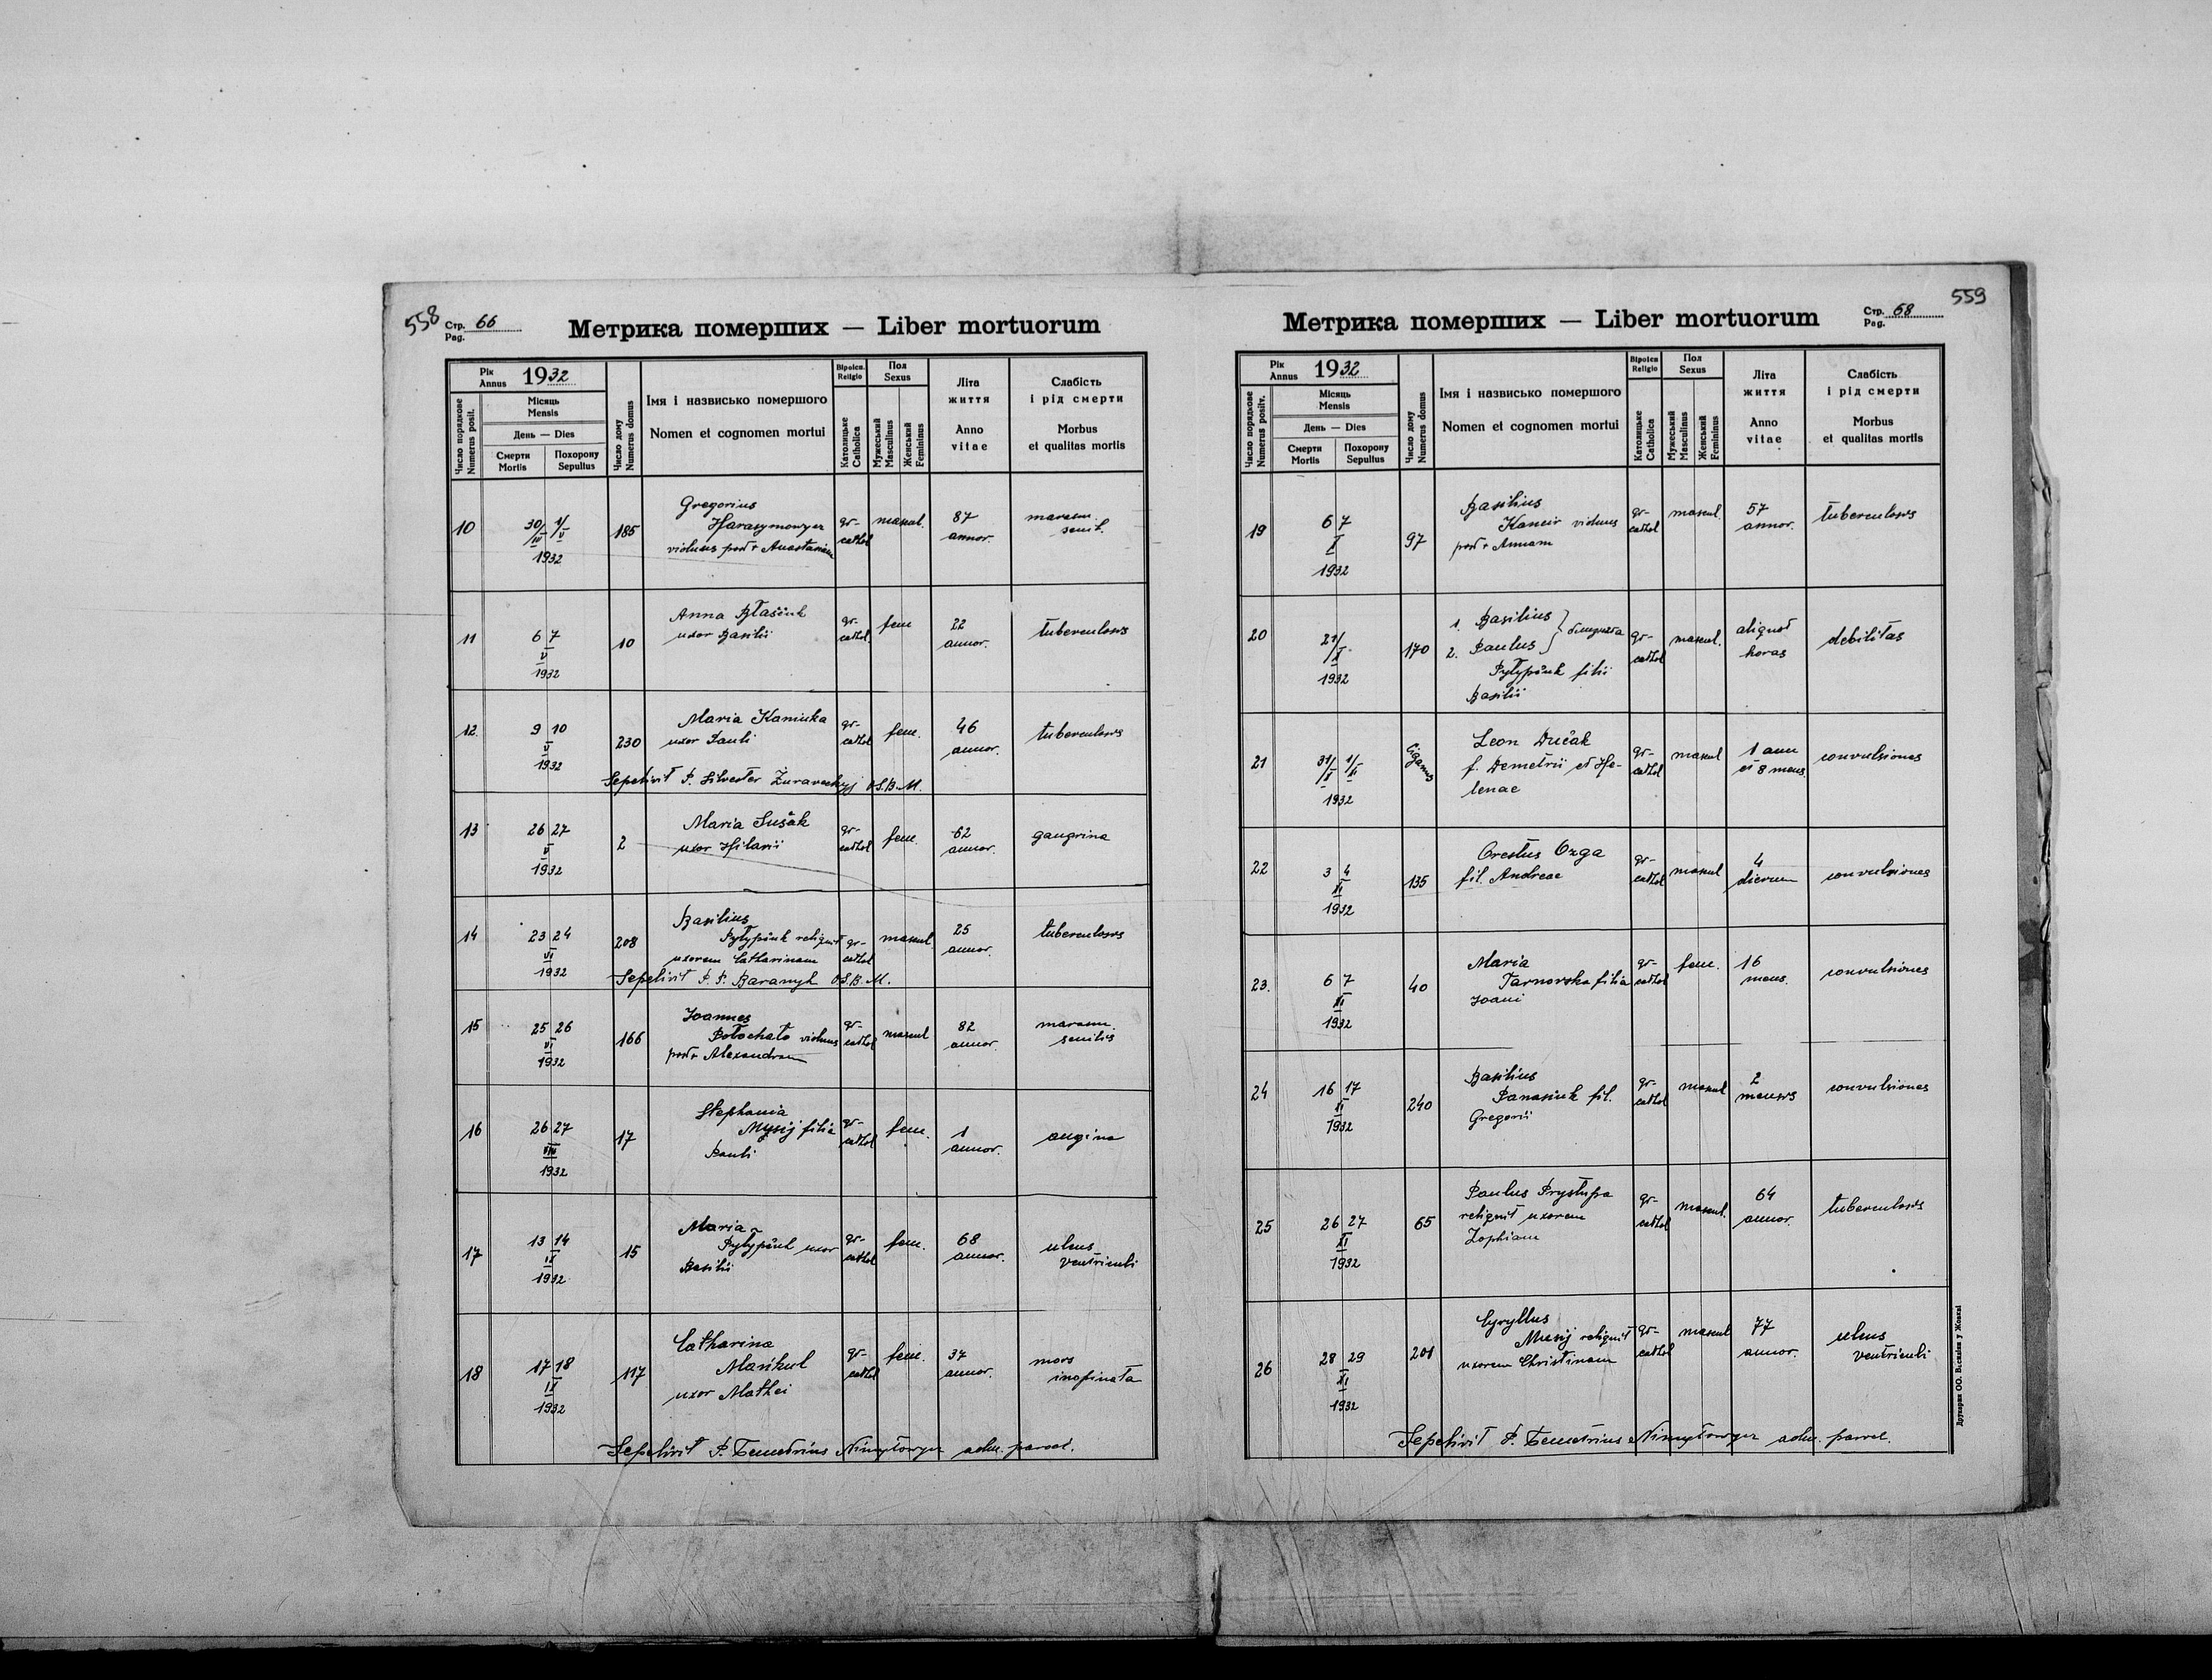 558
Стр. 66
Pag.
Метрика померших — Liber mortuorum
Рік
Annus 1932
Місяць
Mensis
День — Dies
Смерти
Mortis
Похорону
Sepultus
Число порядкове
Numerus posit.
Число дому
Numerus domus
Імя і назвисько помершого
Nomen et cognomen mortui
Віроісп.
Religio
Католицьке
Catholica
Пол
Sexus
Мужеський
Masculinus
Женський
Femininus
Літа
життя
Anno
vitae
Слабість
і рід смерти
Morbus
et qualitas mortis
10 30/IV 1/V 1932 185 Gregorius
Harasymowycz
viduus post + Anastasiam
gr-
cathol
mascul.
87
annor.
marasm.
senil.
11 6 7 V 1932 10 Anna Błaščuk
uxor Basilii
gr-
cathol.
fem
22
annor.
tuberculosis
12 9 10 V 1932 230 Maria Kaminka
uxor Pauli
gr-
cathol
fem.
46
annor.
tuberculosis
Sepelivit P. Silvester Žuraveckyj O.S.B.M.
13 26 27 V 1932 2 Maria Sušak
uxor Hilarii
gr-
cathol
fem.
62
annor.
gangrina
14 23 24 VI 1932 208 Basilius
Pyłypčuk reliquit
uxorem Catharinam
gr-
cathol
mascul
25
annor.
tuberculosis
Sepelivit P. P. Baranyk O.S.B.M.
15 25 26 VI 1932 166 Joannes
viduus
post + Alexandram
gr-
cathol
mascul
82
annor.
marasm.
senilis
16 26 27 VIII 1932 17 Stephania
Mysij filia
Pauli
gr-
cathol
fem.
1
annor.
angina
17 13 14 IX 1932 15 Maria
Pyłypčuk uxor
Basilii
gr-
cathol
fem.
68
annor.
ulcus
ventriculi
18 17 18 IX 1932 117 Catharina
uxor Mathei
gr-
cathol
fem.
37
annor.
mors
inopinata
Sepelivit P. Demetrius adm. paroch.
559
Стр. 68
Pag.
Метрика померших — Liber mortuorum
Рік
Annus 1932
Місяць
Mensis
День — Dies
Смерти
Mortis
Похорону
Sepultus
Число порядкове
Numerus positv.
Число дому
Numerus domus
Імя і назвисько помершого
Nomen et cognomen mortui
Віроісп
Religio
Католицьке
Catholica
Пол
Sexus
Мужеський
Masculinus
Женський
Femininus
Літа
життя
Anno
vitae
Слабість
і рід смерти
Morbus
et qualitas mortis
19 6 7 X 1932 97 Basilius
viduus
post + Annam
gr-
cathol
mascul.
57
annor.
tuberculosis
20 21/X 1932 170 1. Basilius
2. Paulus
близнята
Pyłypčuk filii
Basilii
gr-
cathol
mascul.
aliquot
horas
debilitas
21 31/X 1/XI 1932 Leon Dučak
f. Demetrii et He-
lenae
gr-
cathol
mascul
1 ann
et 8 mens.
convulsiones
22 3 4 XI 1932 135 Orestus Ozga
fil. Andreae
gr-
cathol
mascul
4
dierum
convulsiones
23. 6 7 XI 1932 40 Maria
Tarnovska filia
Joani
gr-
cathol
fem.
16
mens.
convulsiones
24 16 17 XI 1932 240 Basilius
Panasiuk fil.
Gregorii
gr-
cathol
mascul
2
mensis
convulsiones
25 26 27 XI 1932 65 Paulus Prystupa
reliquit uxorem
Zophiam
gr-
cathol
mascul.
64
annor.
tuberculosis
26 28 29 XI 1932 201 Cyryllus
Musij reliquit
uxorem Christinam
gr-
cathol
mascul
77
annor.
ulcus
ventriculi
Sepelivit P. Demetrius adm. paroch.
Друкарня ОО. Василіян у Жовкві